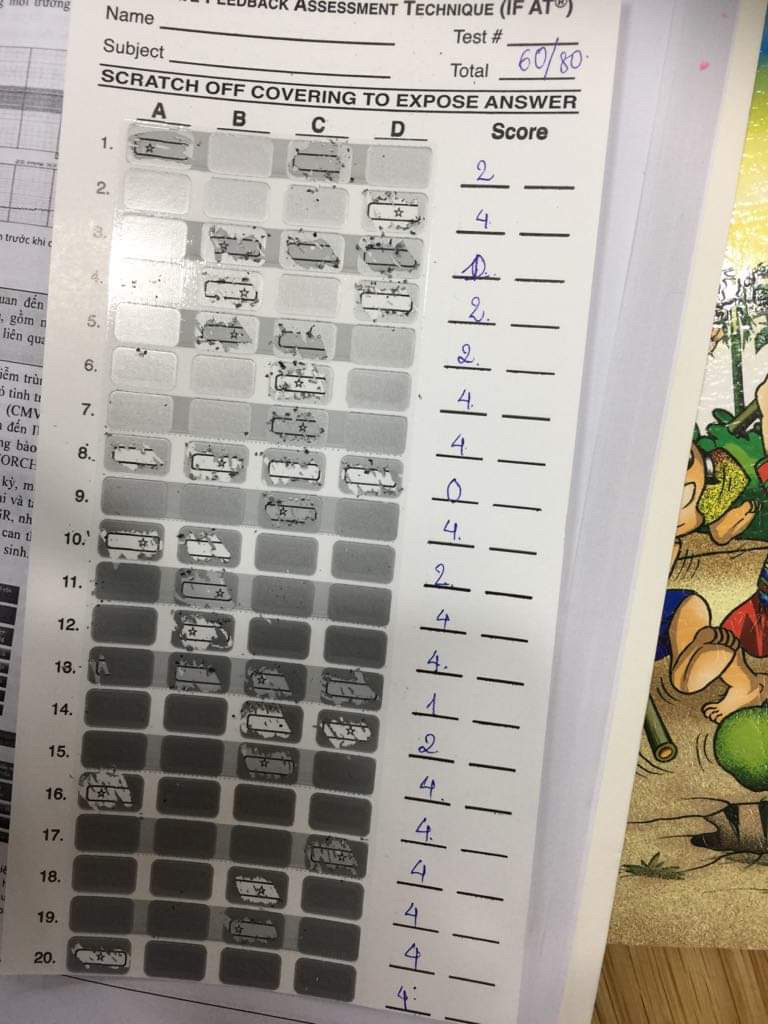 FEEDBACK ASSESSMENT TECHNIQUE (IF AT®)
Name
Test #
Subject
Total 60/80
SCRATCH OFF COVERING TO EXPOSE ANSWER
A B C D Score
1. 2
2. 4
3.
4. 2
5. 2
6. 4
7. 4
8. 0
9. 4
10. 2
11. 4
12. 4
13. 1
14. 2
15. 4
16. 4
17. 4
18. 4
19. 4
20. 4
trước khi
uan đến
, gồm
liên qu
iễm trù
ó tình tr
(CMV
đến
ng bào
ORCH
kỳ, m
ại và t
R, nh
can t
sinh.